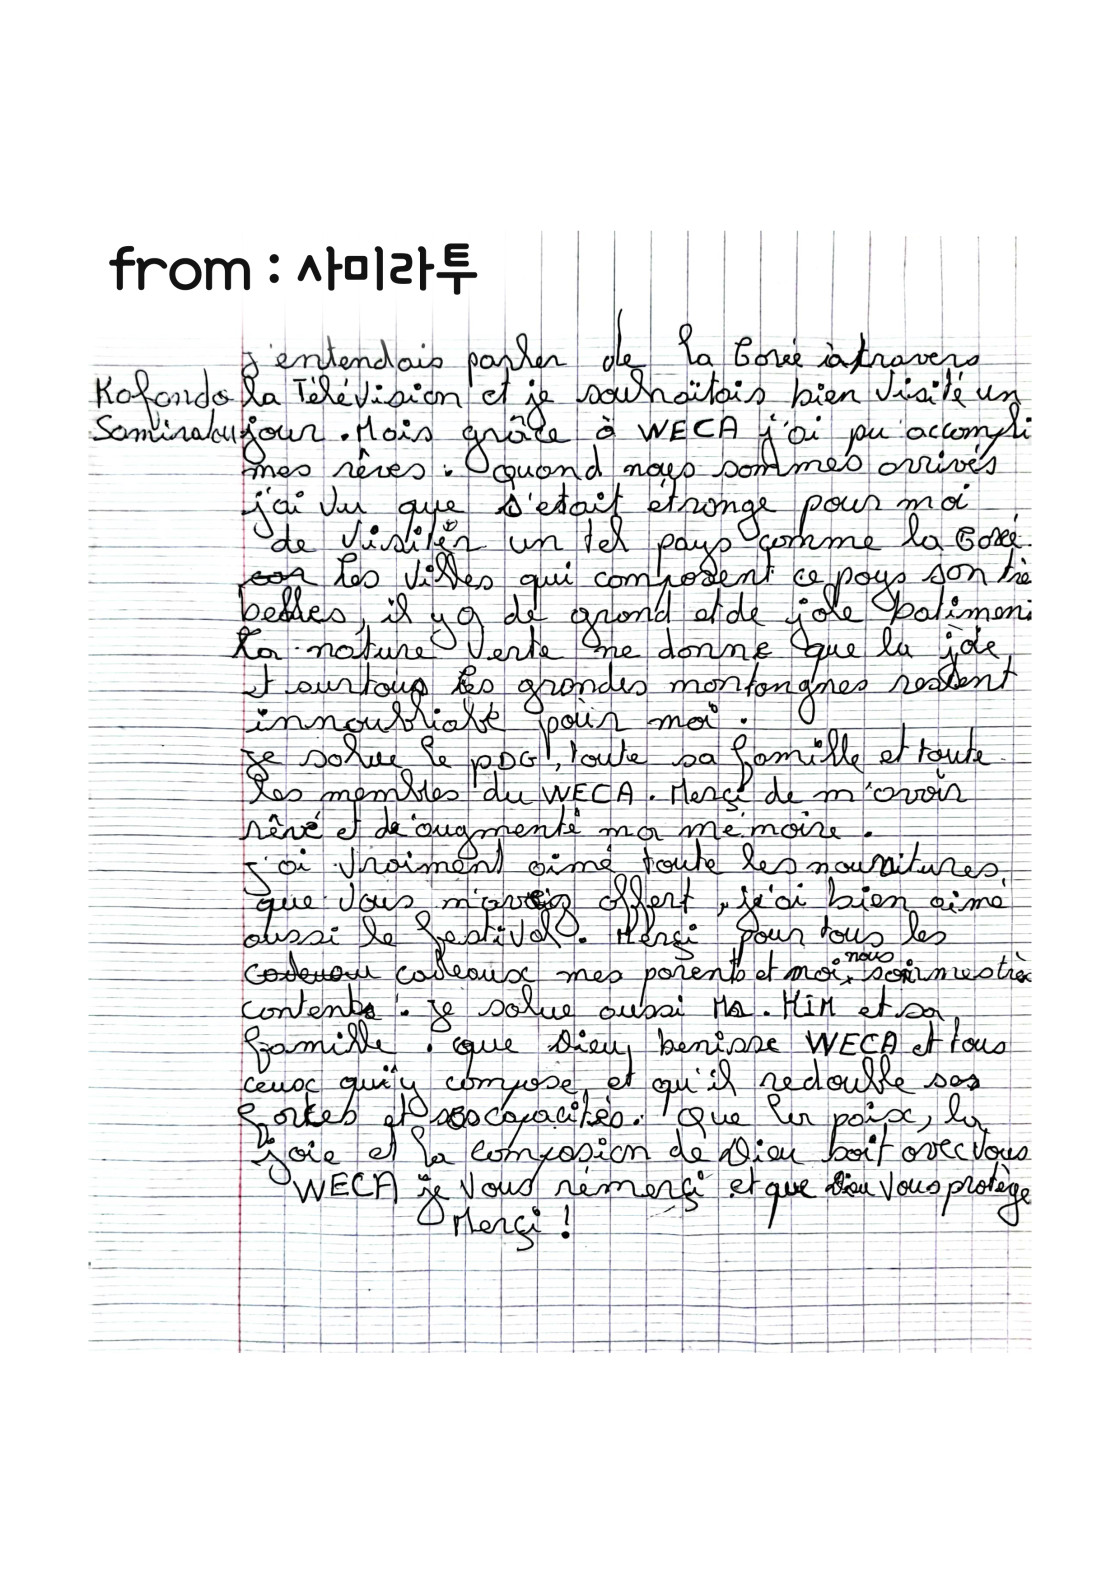 from : 사미라투
j'entendais parler de la Corée à travers
Kafando la Télévision et je souhaitais bien visité un
Samiratou jour. Mais grâce à WECA j'ai pu accompli
mes rêves. quand nous sommes arrivés
j'ai vu que s'etait étrange pour moi
de visiter un tel pays comme la Corée.
car les villes qui composent ce pays son trè
belles, il y a de grand et de jole batimeni
La nature verte me donne que la joie
et surtout les grandes montangnes restent
innoubliable pour moi.
je salue le PDG, toute sa famille et toute
les membles du WECA. Merçi de m'avoir
rêvé et de augmenté ma mémoire.
j'ai vraiment aimé toute les nourritures
que vous m'avez offert, j'ai bien aimé
aussi le festival. Merçi pour tous les
cadeaux mes parents et moi, nous sommes très
contents. je salue aussi Mr. KIM et sa
famille. que Dieu benisse WECA et tous
ceux qui y compose et qu'il redouble ses
forces et ses capacités. Que la paix, la
joie et la compasion de Dieu soit avec vous
WECA je vous remerçi et que Dieu vous protège
Merçi !